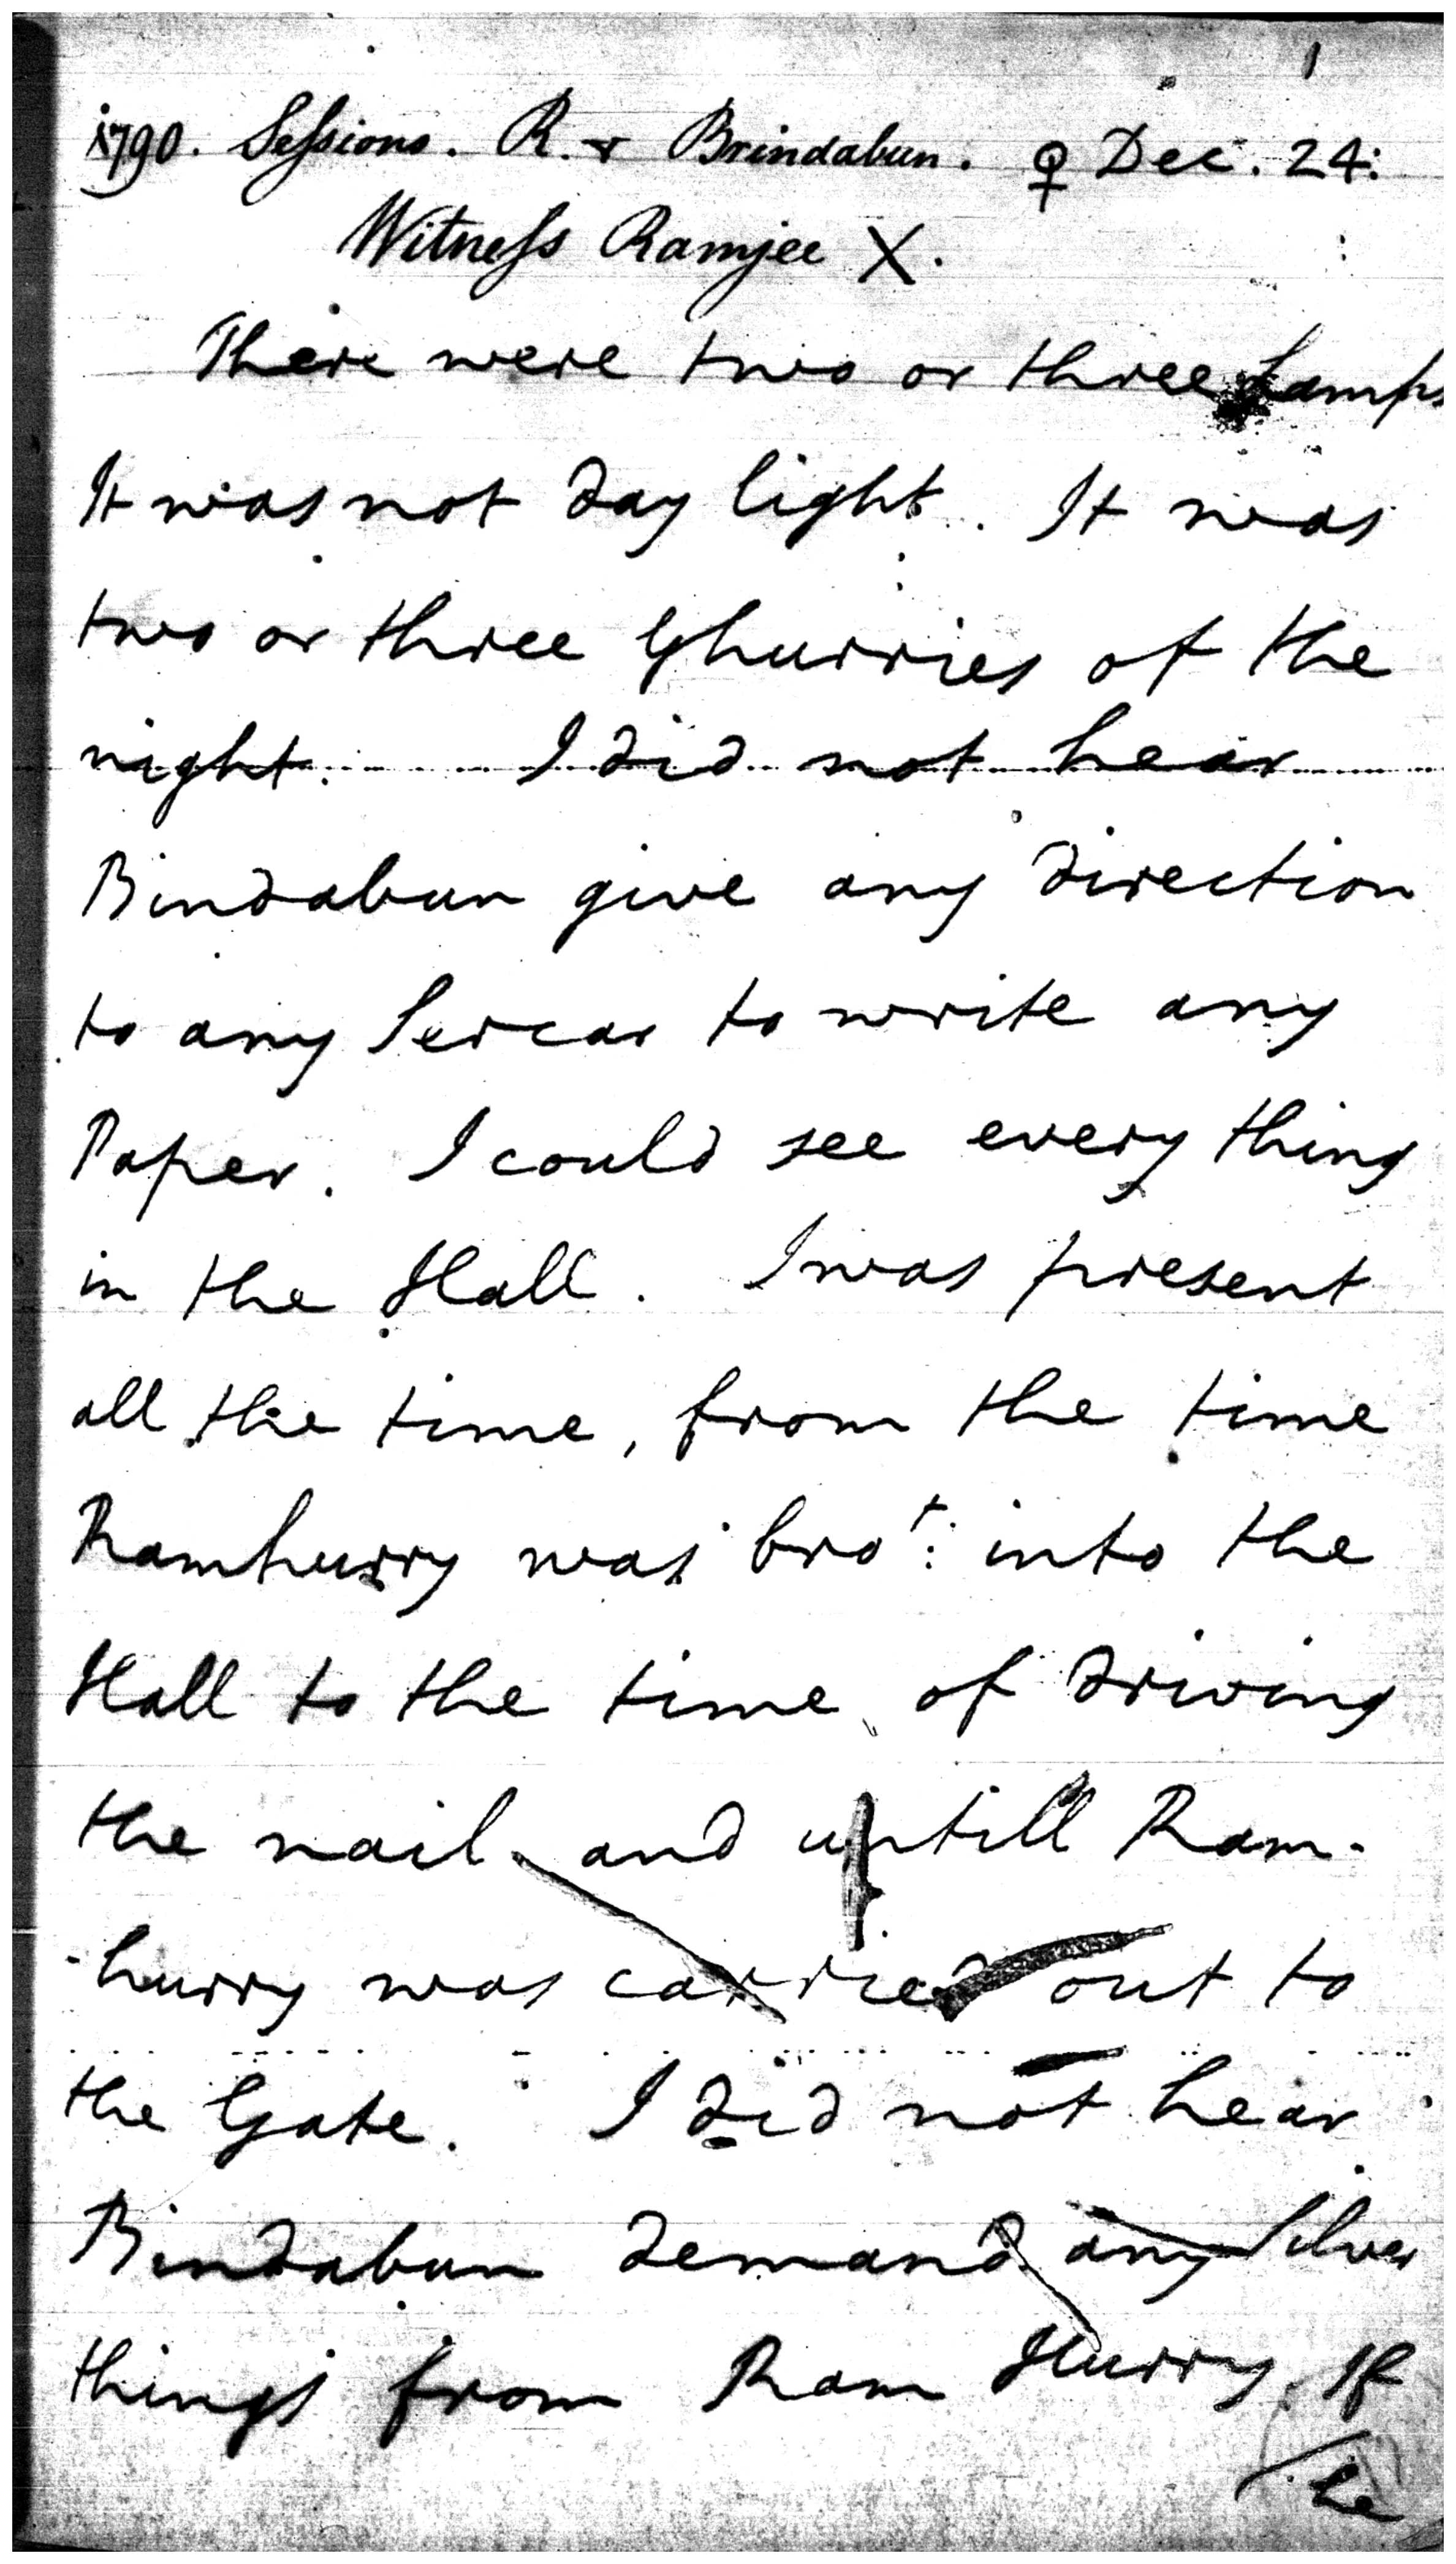 1
1790. Sessions. R. v Brindabun. ♀ Dec. 24:
Witness Ramjee X.
There were two or three Lamps
It was not day light. It was
two or three Ghurries of the
night. I did not hear
Bindabun give any direction
to any Sercar to write any
Paper. I could see every thing
in the Hall. I was present
all the time, from the time
Ramhurry was bro^t: into the
Hall to the time of driving
the nail and untill Ram-
-hurry was carried out to
the Gate. I did not hear
Bindabun demand any Silver
things from Ram Hurry. If
he